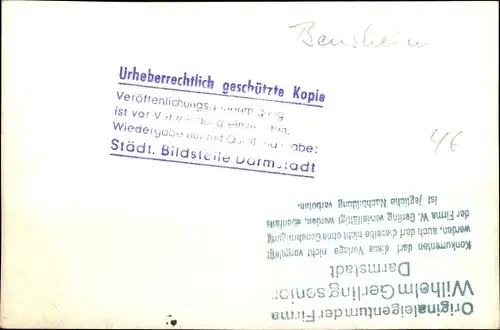 Bensheim
Urheberrechtlich geschützte Kopie
Veröffentlichungsgenehmigung
ist vor Verwendung einzuholen.
Wiedergabe nur mit Quellenangabe:
Städt. Bildstelle Darmstadt
4€
Originaleigentum der Firma
Wilhelm Gerling senior
Darmstadt
Konkurrenten darf diese Vorlage nicht vorgelegt
werden, auch darf dieselbe nicht ohne Genehmigung
der Firma W. Gerling vervielfältigt werden, ebenfalls
ist jegliche Nachbildung verboten.